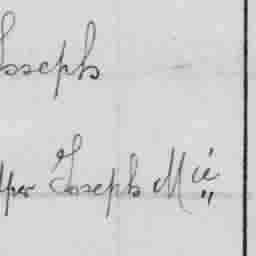 Joseph
per Joseph Mc